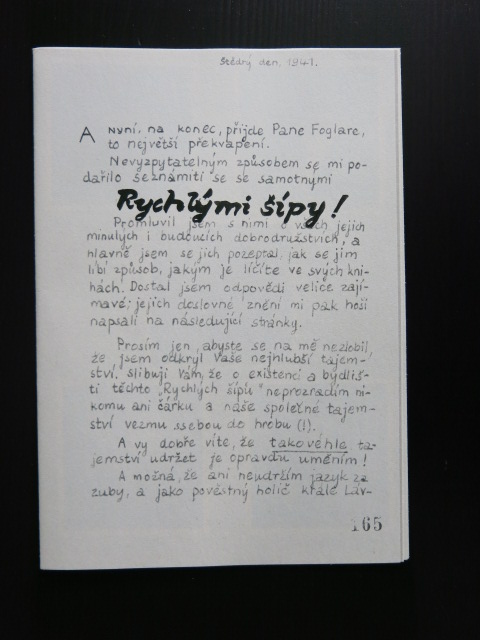 Štědrý den, 1941.
A nyní, na konec, přijde Pane Foglare,
to největší překvapení.
Nevyzpytatelným způsobem se mi po-
dařilo seznámiti se se samotnymi
Rychlými šípy!
Promluvil jsem s nimi o všech jejich
minulých i budoucích dobrodružstvích, a
hlavně jsem se jich pozeptal, jak se jim
líbí způsob, jakým je líčíte ve svých kni-
hách. Dostal jsem odpovědi velice zají-
mavé; jejich doslovné znění mi pak hoši
napsali na následující stránky.
Prosím jen, abyste se na mě nezlobil,
že jsem odkryl Vaše nejhlubší tajem-
ství. Slibuji Vám, že o existenci a bydliš-
ti těchto „Rychlých šípů“ neprozradím ni-
komu ani čárku a naše společné tajem-
ství vezmu ssebou do hrobu (!).
A vy dobře víte, že takovéhle ta-
jemství udržet je opravdu uměním!
A možná, že ani neudržím jazyk za
zuby, a jako pověstný holič krále Láv-
165